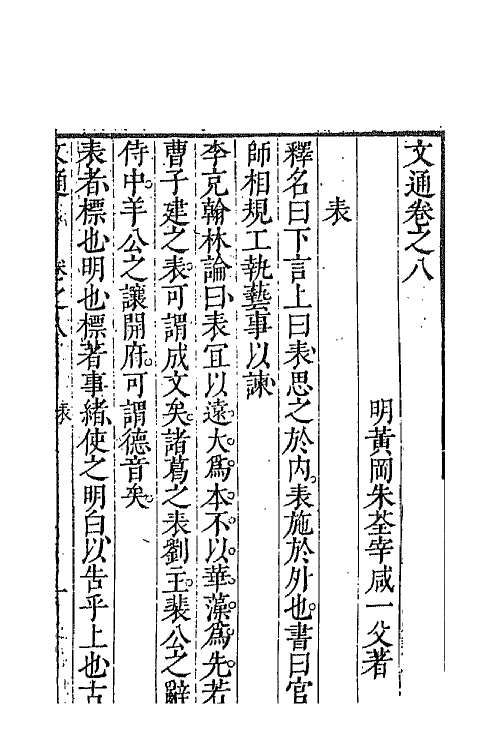 文通卷之八
明黃岡朱荃宰咸一父著
表
釋名曰下言上曰表思之於内表施於外也書曰官
師相規工執藝事以諫
李充翰林論曰表宜以遠大爲本不以華藻爲先若
曹子建之表可謂成文矣諸葛之表劉主裴公之辭
侍中羊公之讓開府可謂德音矣
表者標也明也標著事緒使之明白以告乎上也古
文通 卷之八 表 一